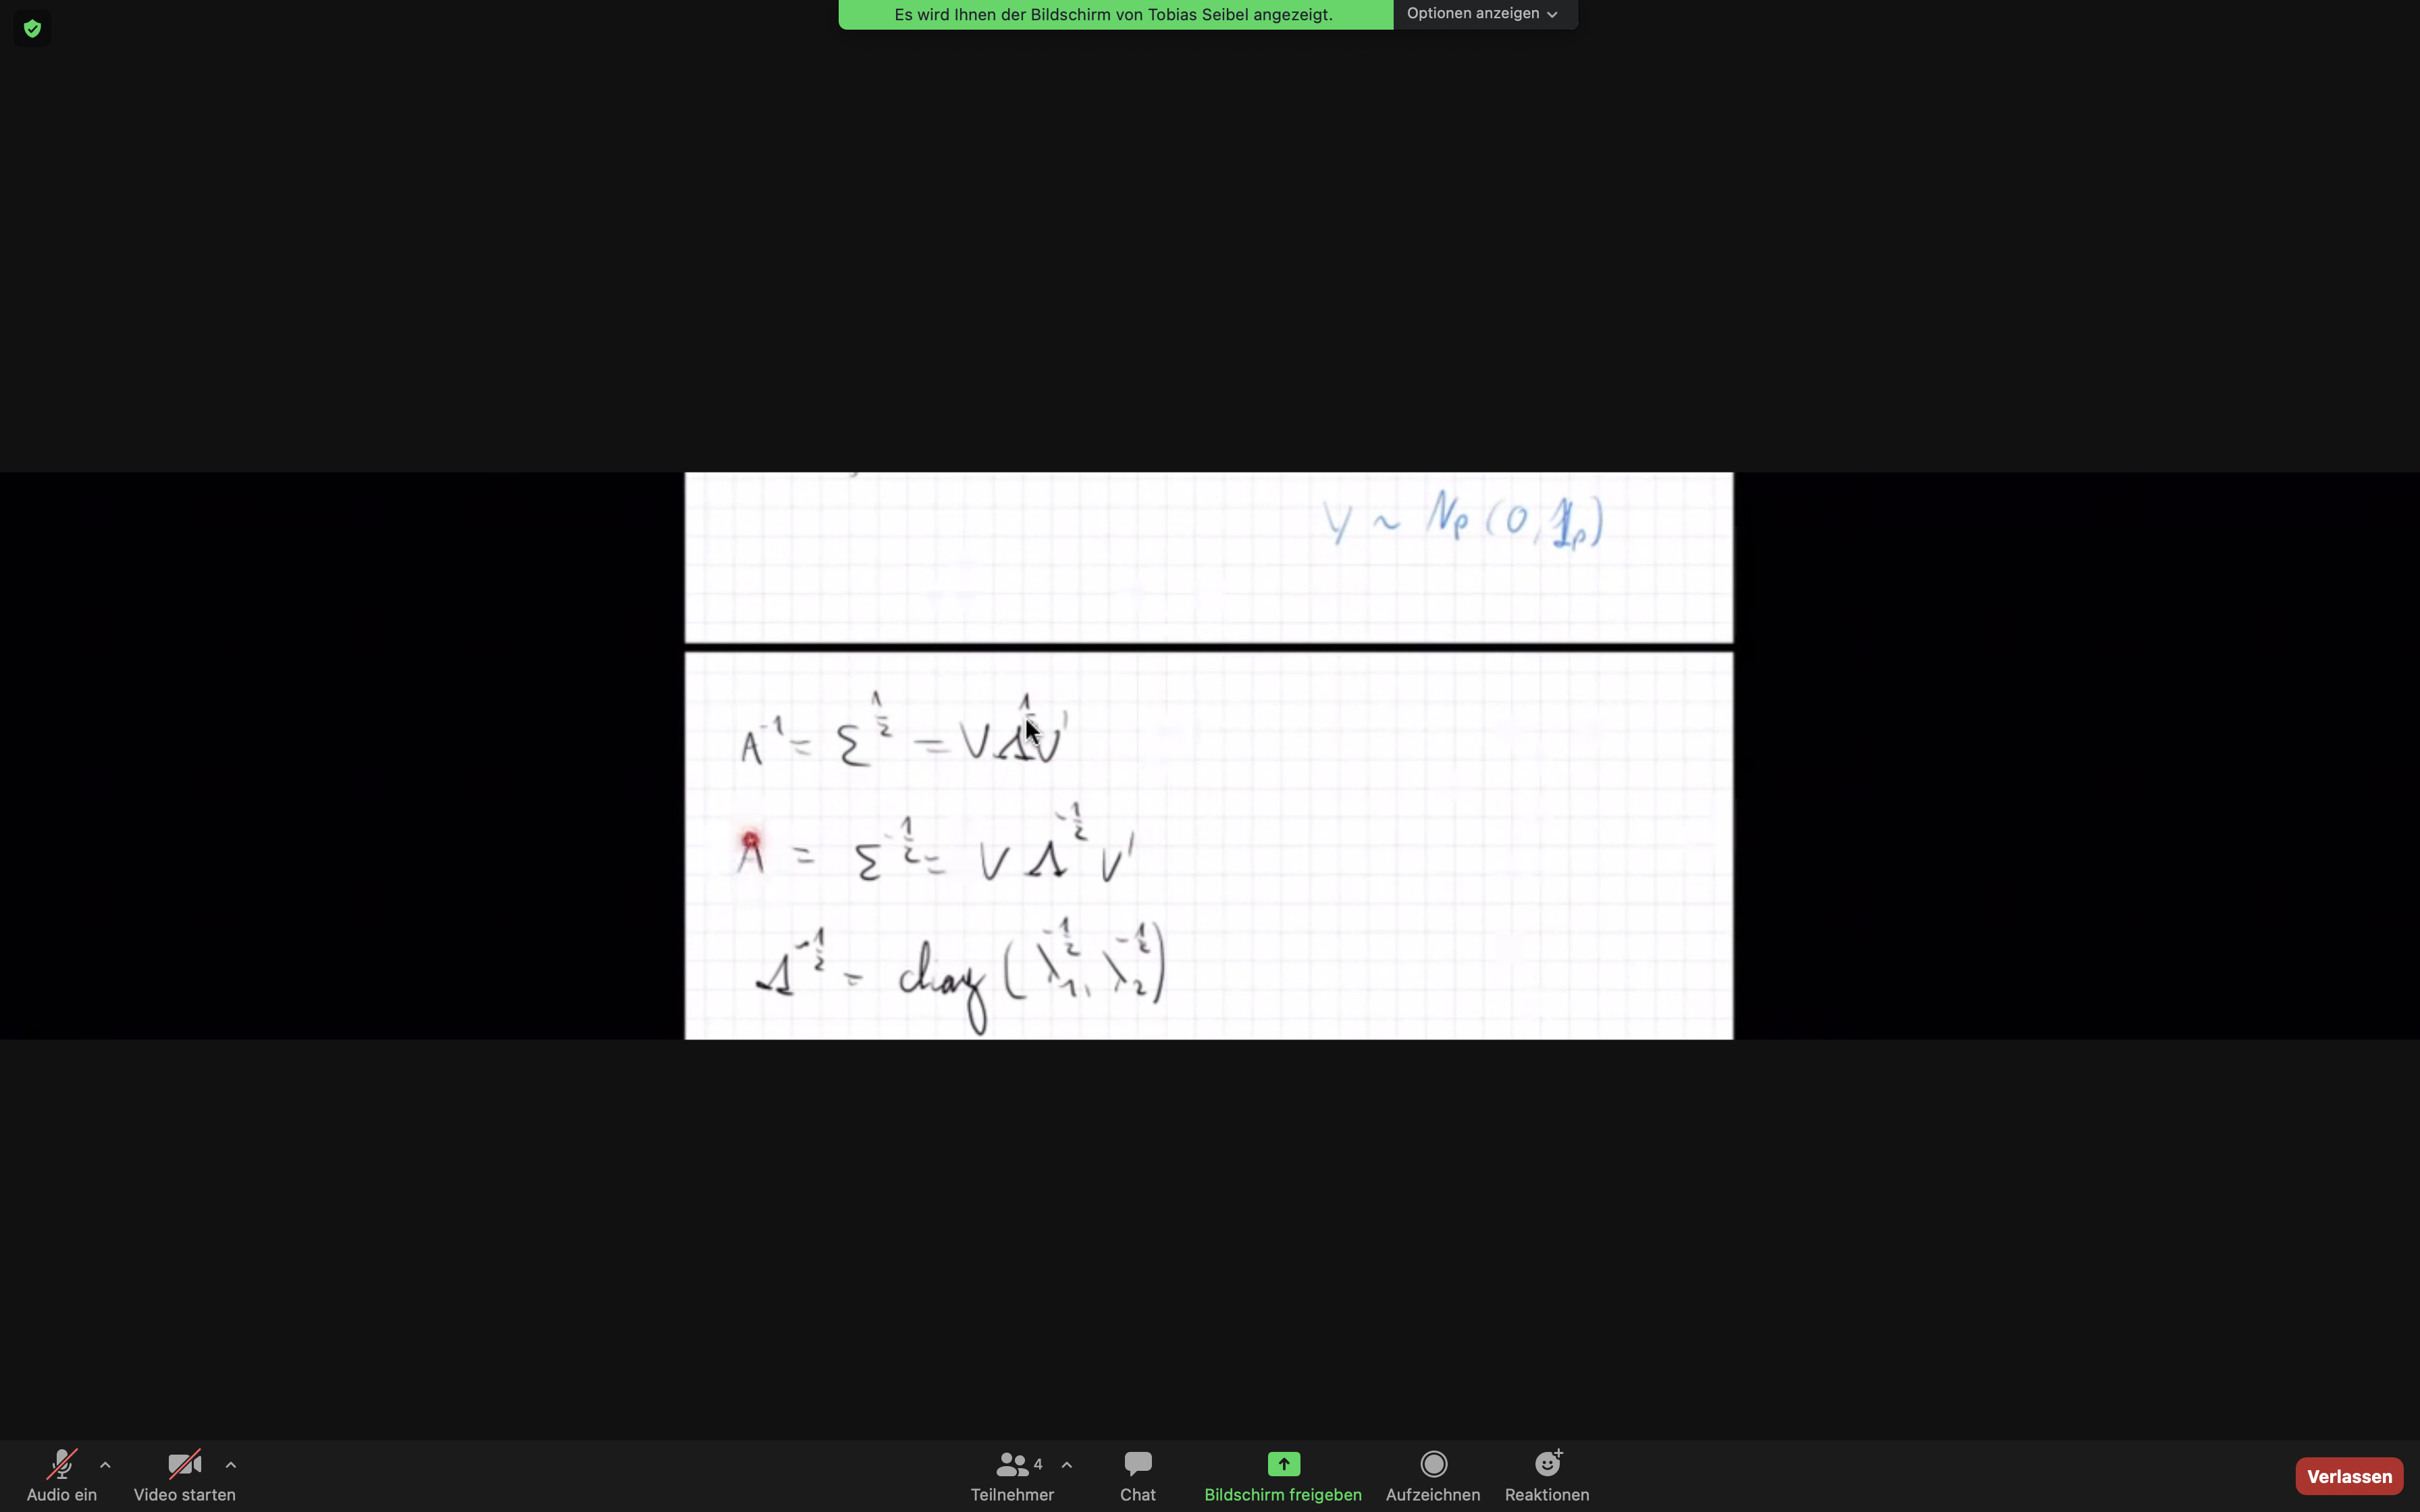 Es wird Ihnen der Bildschirm von Tobias Seibel angezeigt.
Optionen anzeigen
Y ~ Np (0, 1p)
A^-1 = Σ^1/2 = V Λ^1/2 V'
A = Σ^-1/2 = V Λ^-1/2 V'
Λ^-1/2 = diag (λ1^-1/2, λ2^-1/2)
Audio ein
Video starten
4
Teilnehmer
Chat
Bildschirm freigeben
Aufzeichnen
Reaktionen
Verlassen